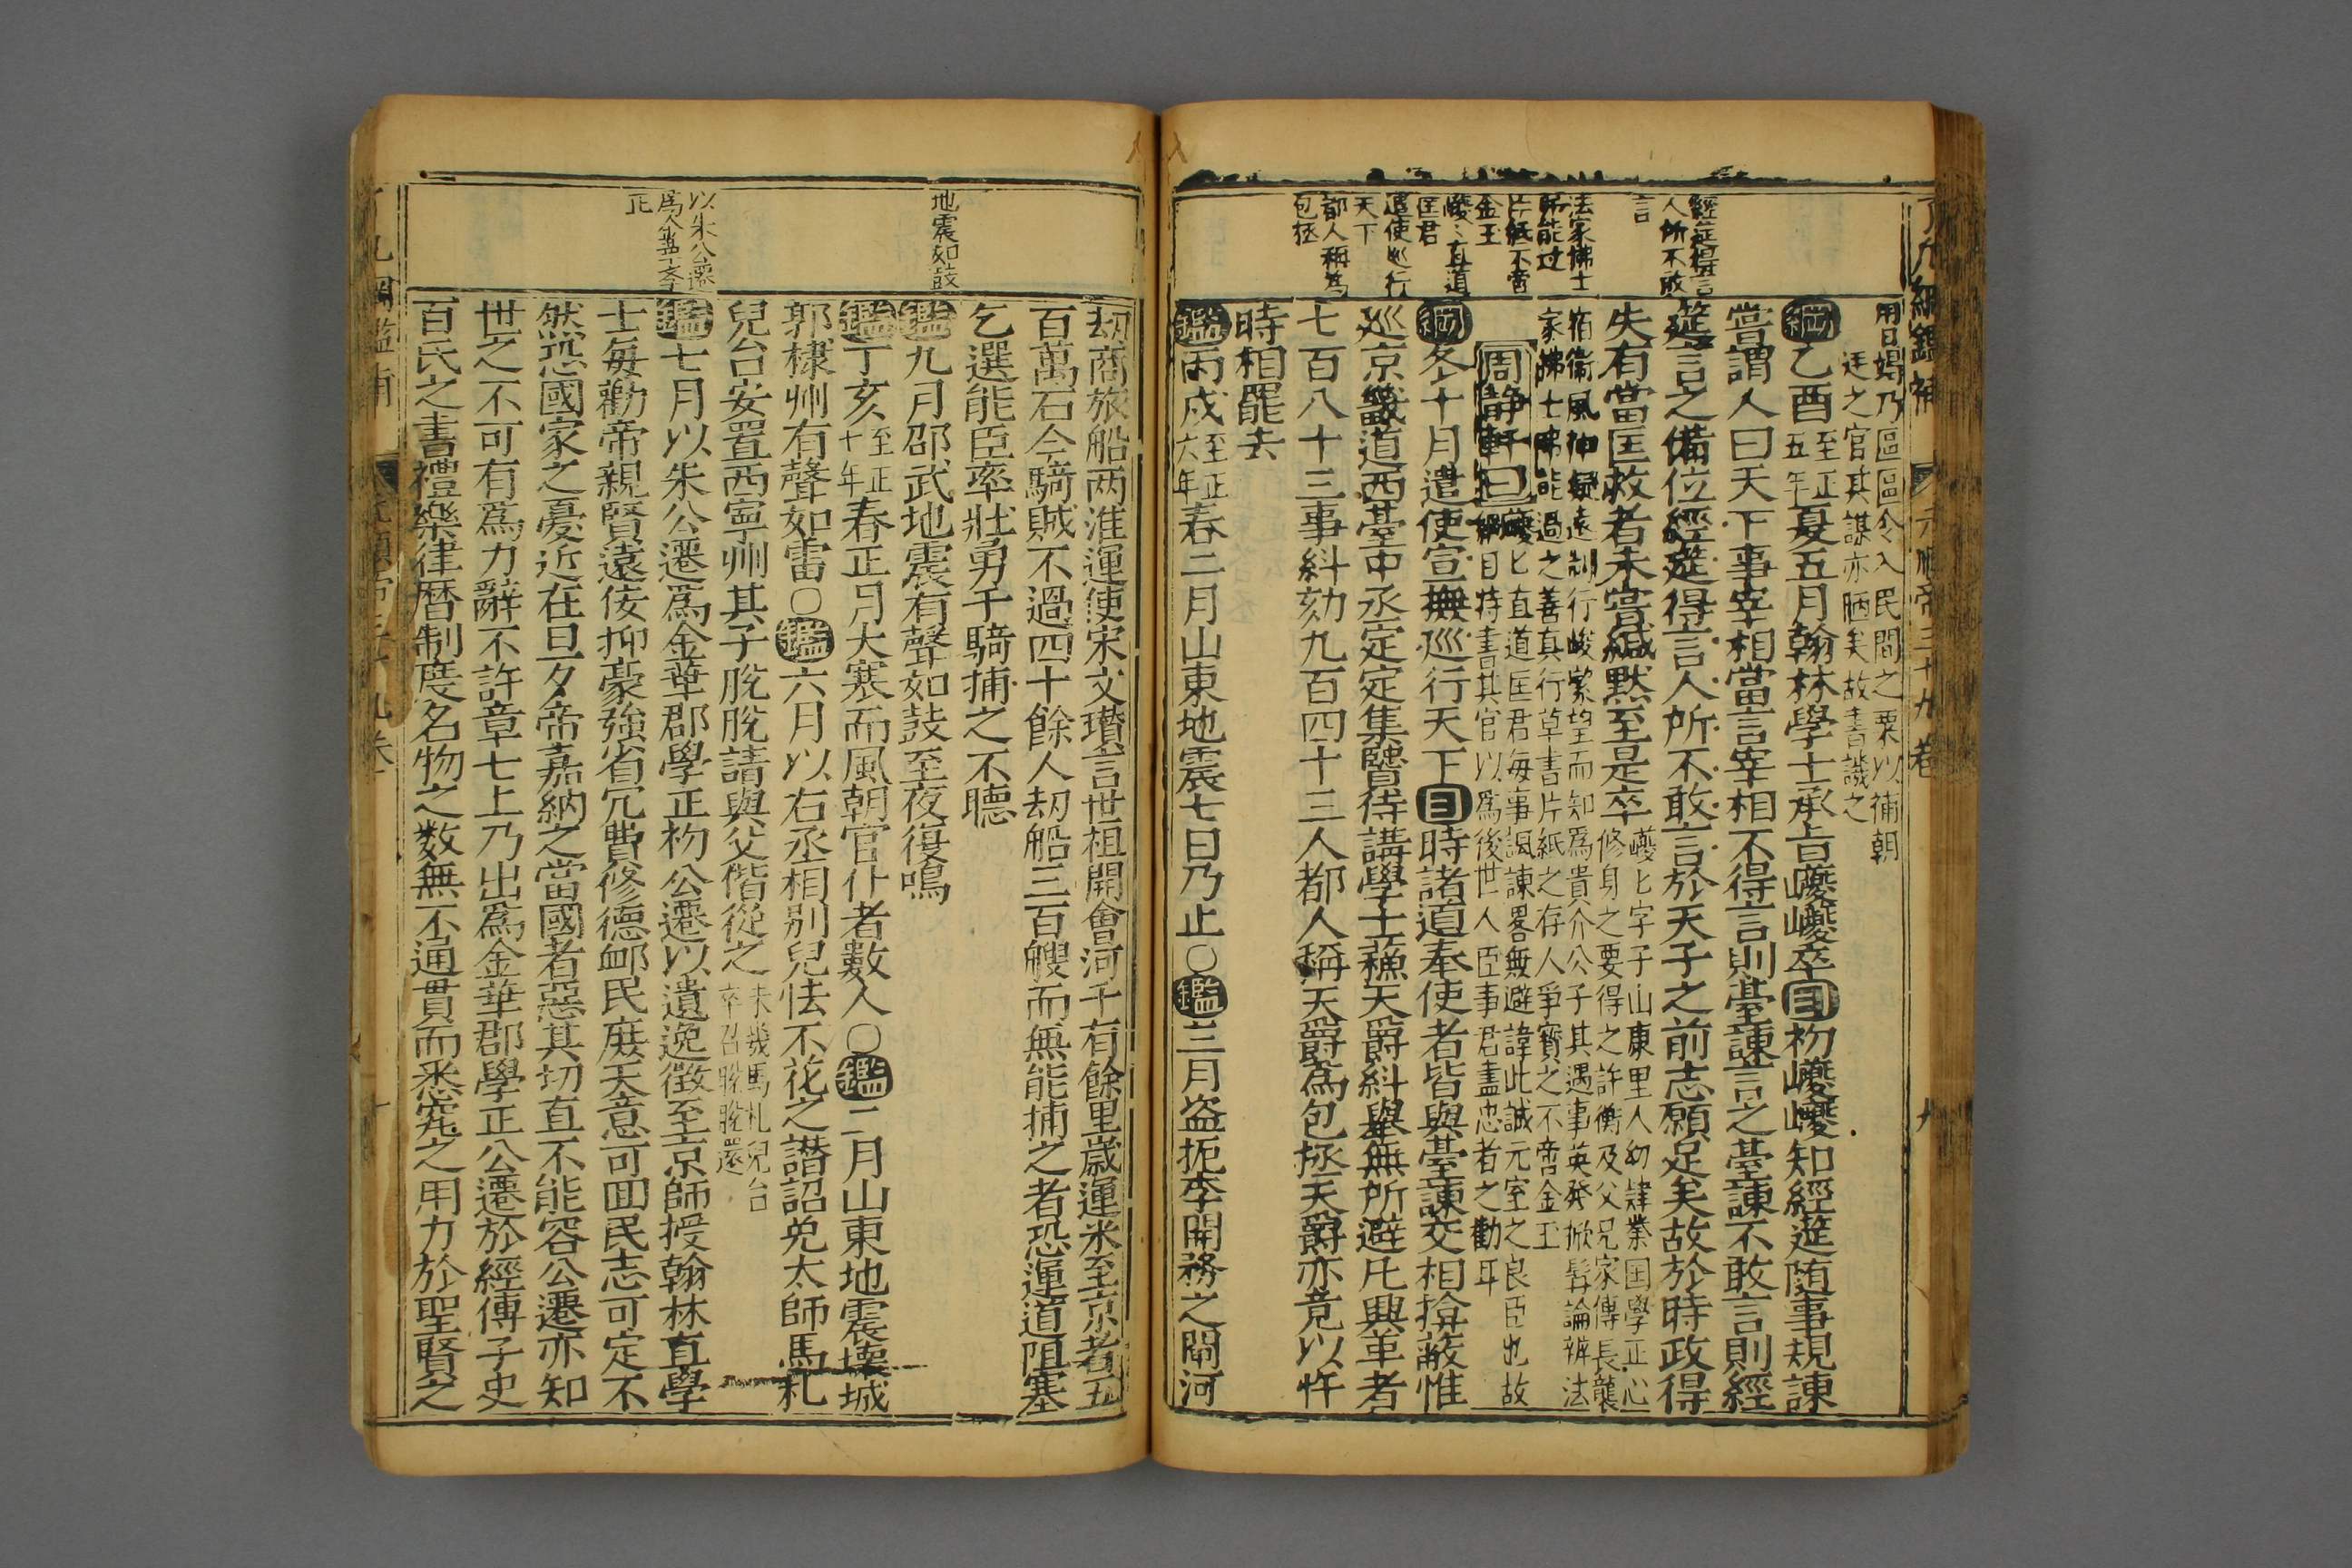 用日娟乃區區令入民間之粟以補朝
廷之官其謀亦陋矣故書譏之
綱乙酉至正五年夏五月翰林學士承旨巙巙卒目初巙巙知經筵随事規諫
嘗謂人曰天下事宰相當言宰相不得言則臺諫言之臺諫不敢言則經
筵言之備位經筵得言人所不敢言於天子之前志願足矣故於時政得
失有當匡救者未嘗緘黙至是卒巙匕字子山康里人幼肄業国學正心
修身之要得之許衡及父兄家傳長襲
宿衞風神凝遠制行峻㓗望而知爲貴介公子其遇事英發掀髯論辨法
家拂士弗能過之善真行草書片紙之存人爭寶之不啻金玉
周静軒曰巙匕直道匡君每事諷諫畧無避諱此誠元室之良臣也故
綱目特書其官以爲後世人臣事君盡忠者之勸耳
綱冬十月遣使宣撫巡行天下目時諸道奉使者皆與臺諫交相揜蔽惟
巡京畿道西臺中丞定定集賢侍講學士蘓天爵糾舉無所避凡興革者
七百八十三事糾劾九百四十三人都人稱天爵為包拯天爵亦竟以忤
時相罷去
鑑丙戌至正六年春二月山東地震七日乃止〇鑑三月盗扼李開務之閘河
經筵得言
人所不敢
言
法家拂士
弗能过
片紙不啻
金玉
巙〻直道
匡君
遣使巡行
天下
都人稱為
包拯
了凡綱鑑補
元順帝三十九卷
九
劫商旅船两淮運使宋文瓚言世祖開會河千有餘里歲運米至京者五
百萬石今騎賊不過四十餘人劫船三百艘而無能捕之者恐運道阻塞
乞選能臣率壯勇千騎捕之不聴
鑑九月邵武地震有聲如鼓至夜復鳴
鑑丁亥至正十年春正月大寒而風朝官仆者數人〇鑑二月山東地震壊城
郭棣州有聲如雷〇鑑六月以右丞相别兒怯不花之譖詔免太師馬札
兒台安置西寧州其子脫脫請與父偕從之未幾馬札兒台
卒召脫脫還
鑑七月以朱公遷爲金華郡學正初公遷以遺逸徴至京師授翰林直學
士每勸帝親賢遠佞抑豪強省冗費修德卹民庻天意可囬民志可定不
然恐國家之憂近在旦夕帝嘉納之當國者惡其切直不能容公遷亦知
世之不可有爲力辭不許章七上乃出爲金華郡學正公遷於經傳子史
百氏之書禮樂律曆制度名物之数無不通貫而悉究之用力於聖賢之
地震如鼓
以朱公遷
爲金華學
正